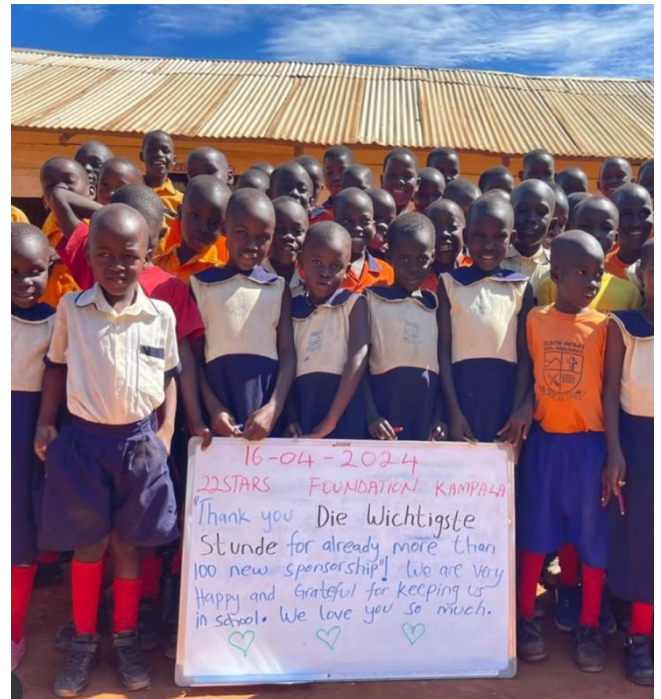 16-04-2024
22STARS FOUNDATION KAMPALA
"Thank you Die Wichtigste
Stunde for already more than
100 new sponsorship"! We are very
Happy and Grateful for keeping us
in school. We love you so much.